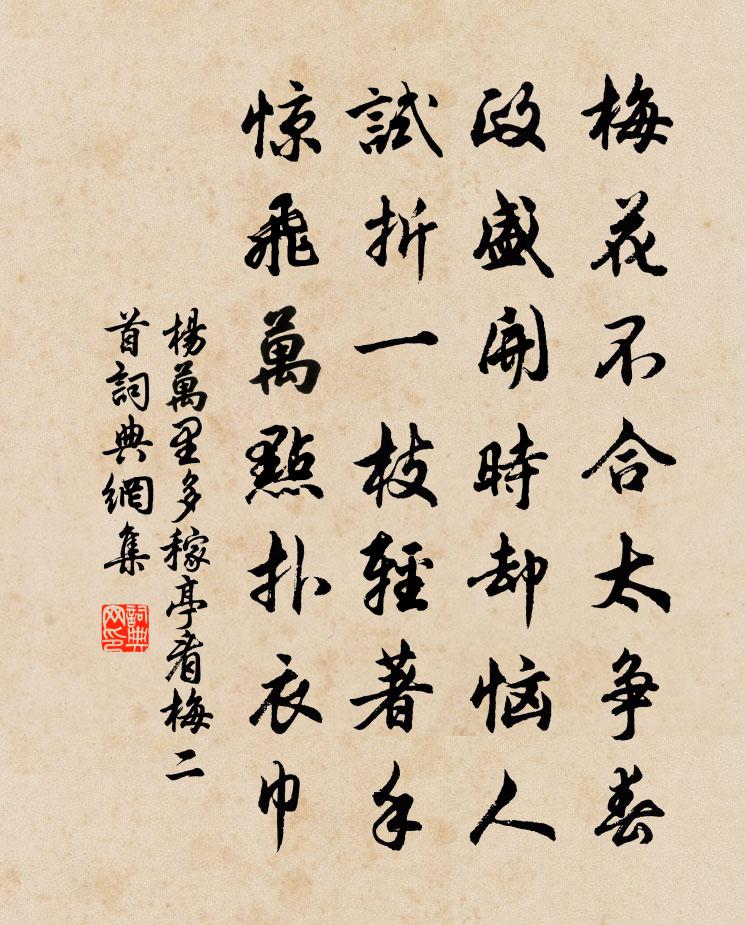 梅花不合太争春
政盛開時却恼人
試折一枝輕著手
惊飛萬點扑衣巾
楊萬里多稼亭看梅二
首詞典網集
詞典网印